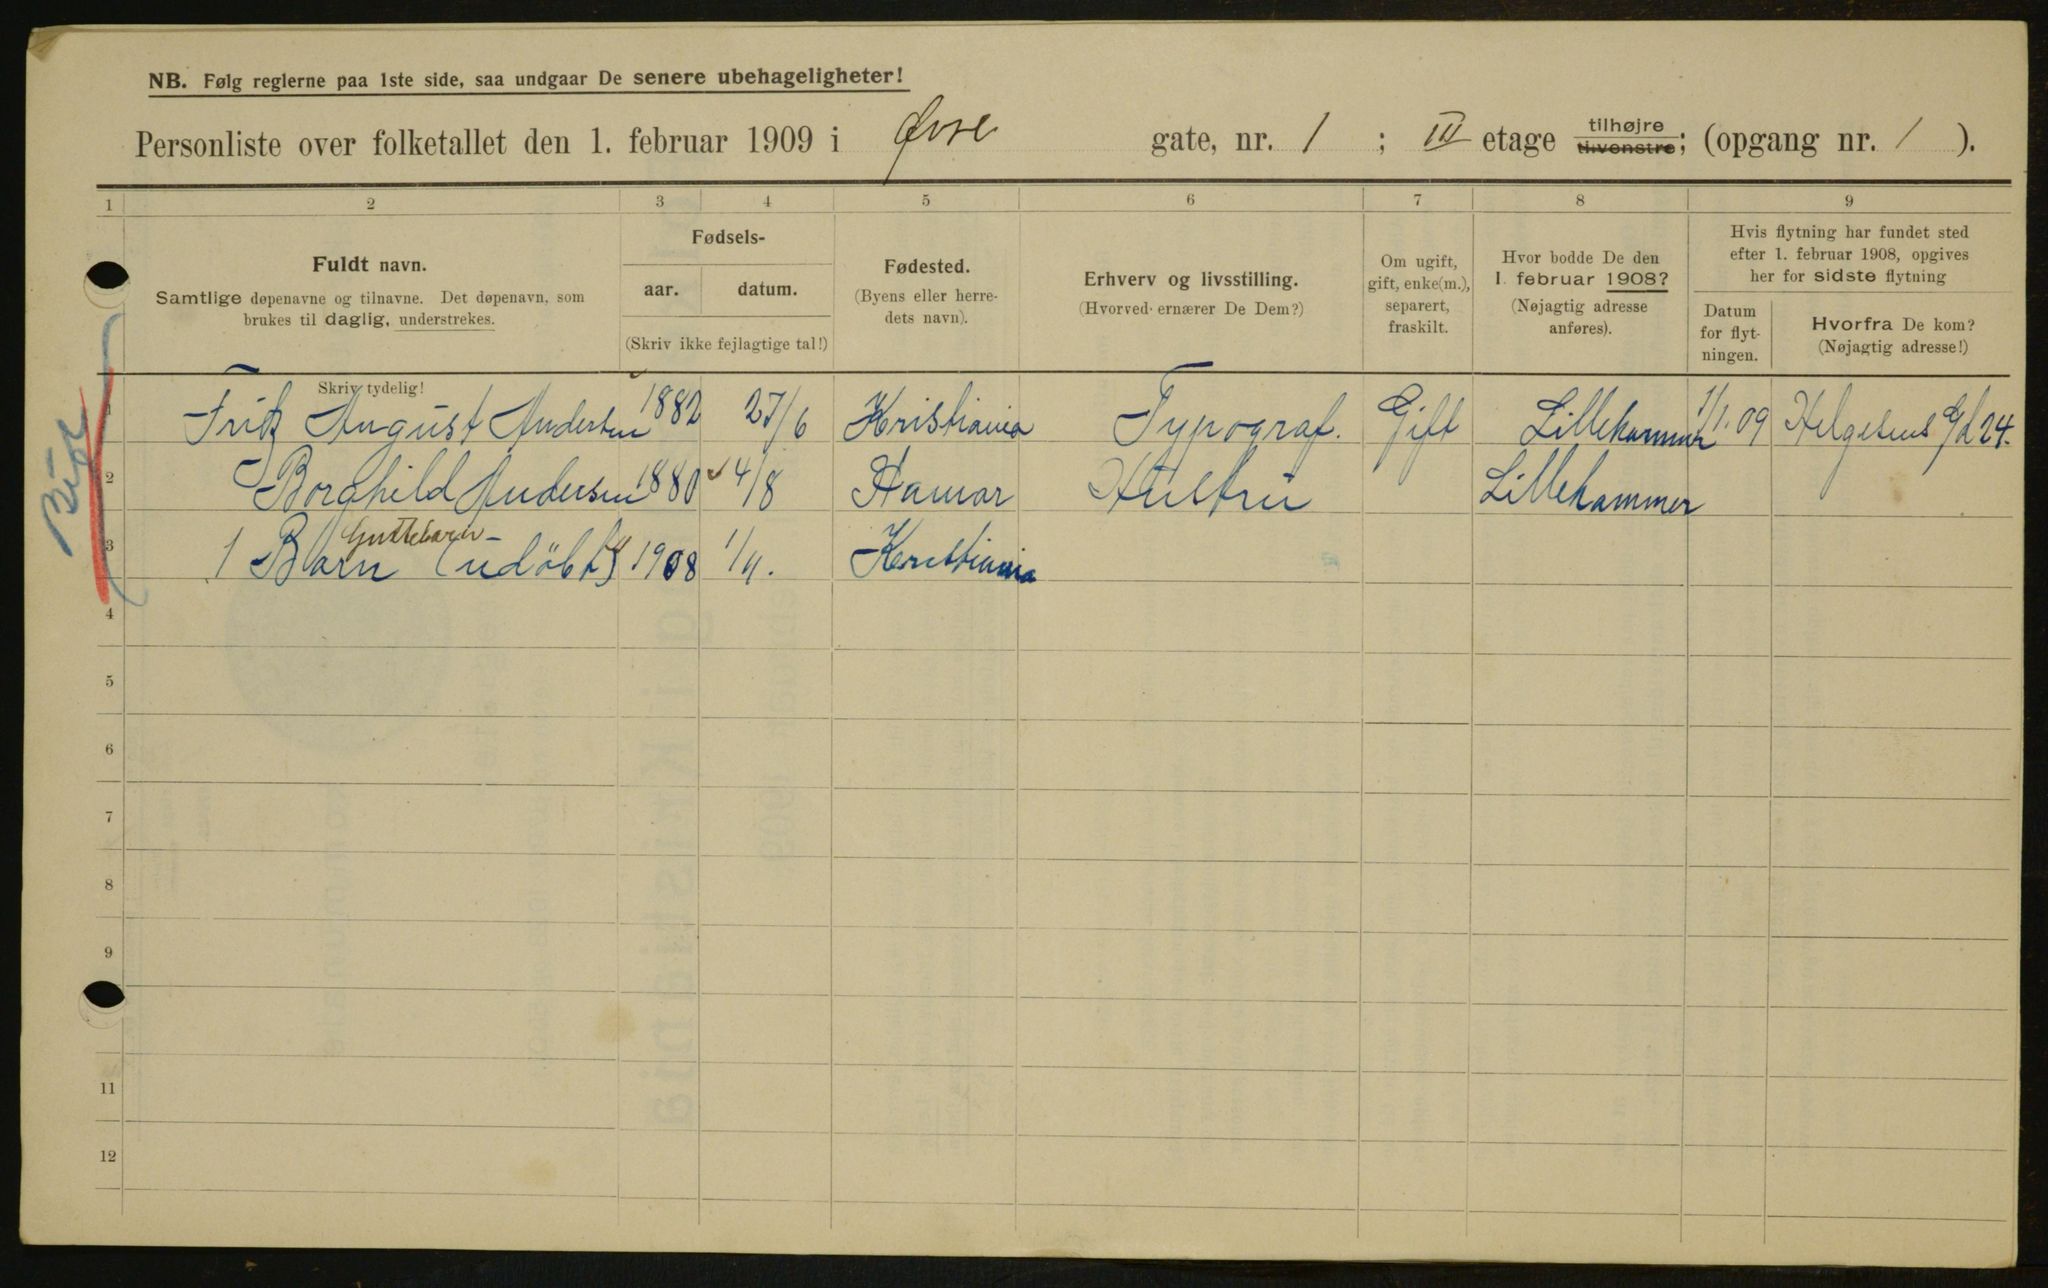 NB. Følg reglerne paa 1ste side, saa undgaar De senere ubehageligheter!
Personliste over folketallet den 1. februar 1909 i Øvre gate, nr. 1 ; III etage tilhøjre tilvenstre; (opgang nr. 1 ).
1 2 3 4 5 6 7 8 9
Fuldt navn.
Samtlige døpenavne og tilnavne. Det døpenavn, som
brukes til daglig, understrekes.
Skriv tydelig!
Fødsels-
aar. datum.
(Skriv ikke fejlagtige tal!)
Fødested.
(Byens eller herre-
dets navn).
Erhverv og livsstilling.
(Hvorved ernærer De Dem?)
Om ugift,
gift, enke(m.),
separert,
fraskilt.
Hvor bodde De den
1. februar 1908?
(Nøjagtig adresse
anføres).
Hvis flytning har fundet sted
efter 1. februar 1908, opgives
her for sidste flytning
Datum
for flyt-
ningen.
Hvorfra De kom?
(Nøjagtig adresse!)
1 Fritz August Andersen 1882 27/6 Kristiania Typograf. Gift Lillehammer 1/1.09 Helgesens g/d 24.
2 Borghild Andersen 1880 14/8 Hamar Hustru Lillehammer
Guttebarn
3 1 Barn (udøbt) 1908 1/11. Kristiania
4
5
6
7
8
9
11
12